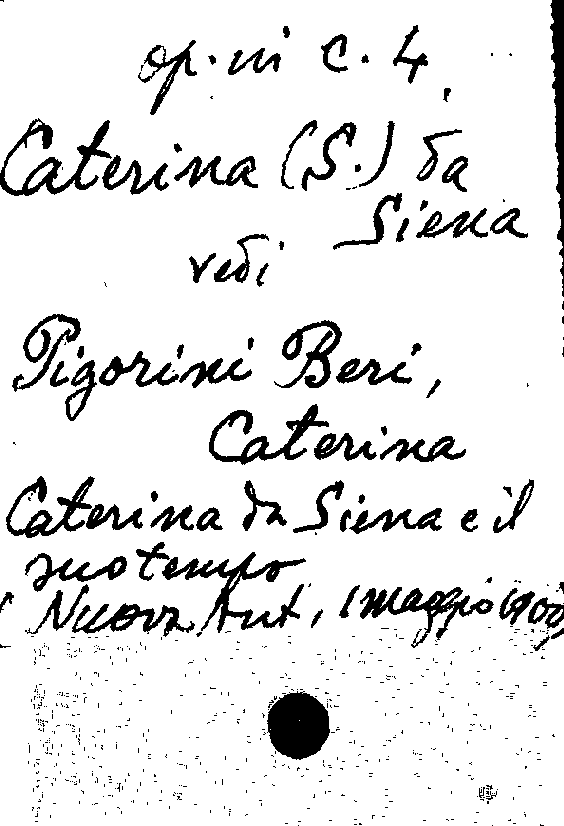 op. in c. 4
Caterina (S.) da
Siena
vedi
Pigorini Beri,
Caterina
Caterina da Siena e il
suo tempo
(Nuova Ant., 1 maggio 1900)